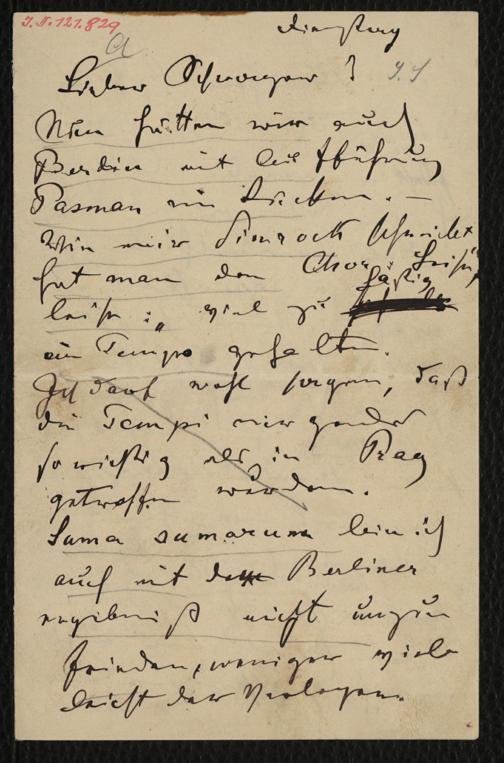 J.N. 121.829
Dienstag
Lieber Schwager!
Nun hätten wir auch
Berlin mit der Aufführung
Pasman im Rücken. —
Wie mir Simrock schreibt
hat man den Chor: "Leise,
leise" viel zu hastig
im Tempo gehalten.
Ich darf wohl sagen, daß
die Tempi nirgends
so richtig als in Prag
getroffen wurden.
Suma sumarum bin ich
auch mit dem Berliner
ergebniß nicht unzu
frieden, weniger viel
leicht der Verleger.